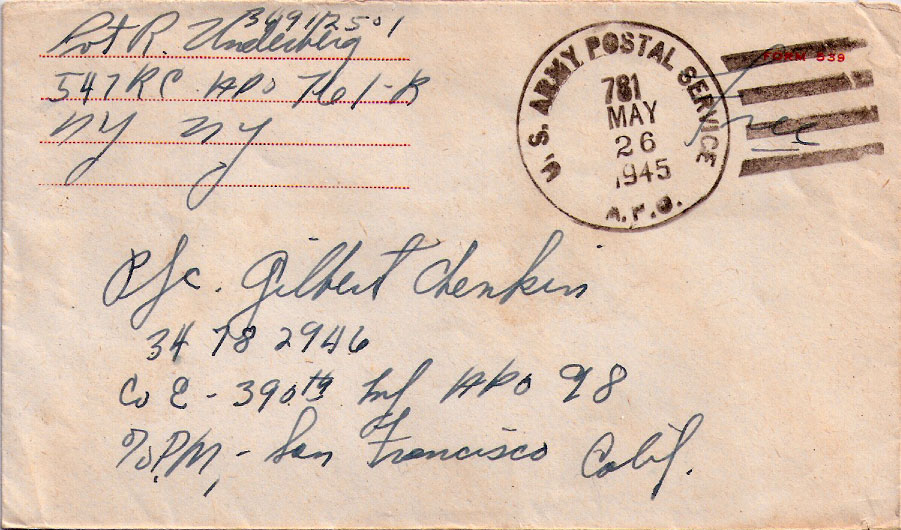 34912501
Pvt R. Underberg
547 RC APO 761-B
NY NY
U.S. ARMY POSTAL SERVICE
781
MAY
26
1945
A.P.O.
FORM 539
Free
Pfc. Gilbert Chenkin
34 78 2946
Co E - 390th Inf APO 98
c/o P.M. - San Francisco Calif.